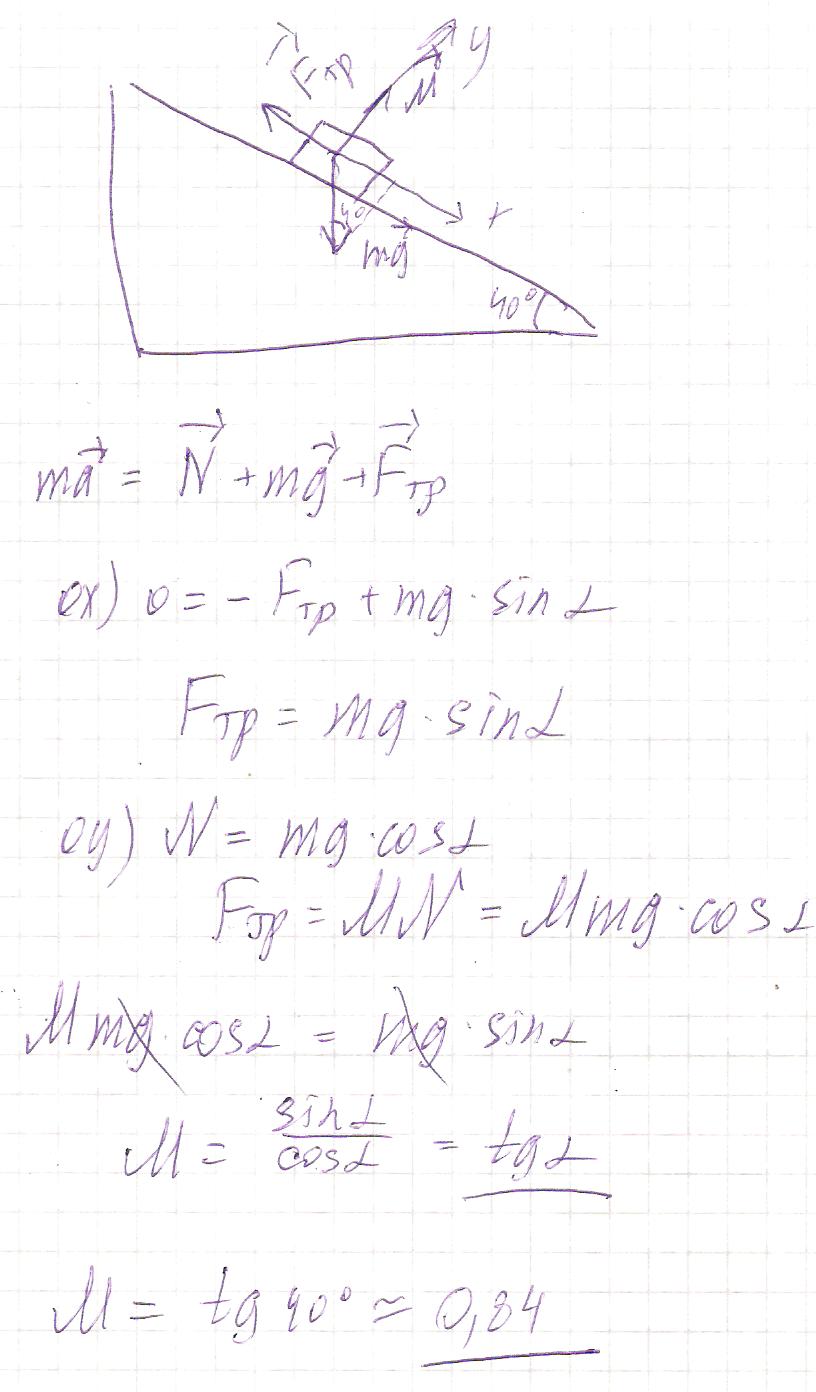 F⃗тр
y
N⃗
x
40°
mg⃗
40°
ma⃗ = N⃗ + mg⃗ + F⃗тр
ox) 0 = - Fтр + mg · sin α
Fтр = mg · sin α
oy) N = mg · cos α
Fтр = μN = μmg · cos α
μmg · cos α = mg · sin α
μ = sin α / cos α = tg α
μ = tg 40° ≃ 0,84